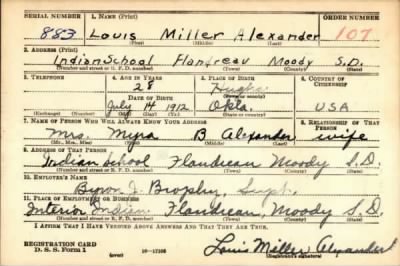 SERIAL NUMBER 1. NAME (Print) ORDER NUMBER
883 Louis Miller Alexander 107
(First) (Middle) (Last)
2. ADDRESS (Print)
Indian School Flandreau Moody S.D.
(Number and street or R. F. D. number) (Town) (County) (State)
3. TELEPHONE 4. AGE IN YEARS 5. PLACE OF BIRTH 6. COUNTRY OF CITIZENSHIP
28 Hughes
DATE OF BIRTH (Town or county)
July 14 1912 Okla. USA
(Exchange) (Number) (Mo.) (Day) (Yr.) (State or country)
7. NAME OF PERSON WHO WILL ALWAYS KNOW YOUR ADDRESS 8. RELATIONSHIP OF THAT PERSON
Mrs. Myra B Alexander wife
(Mr., Mrs., Miss) (First) (Middle) (Last)
9. ADDRESS OF THAT PERSON
Indian School Flandreau Moody S.D.
(Number and street or R. F. D. number) (Town) (County) (State)
10. EMPLOYER'S NAME
Byron J. Brophy, Supt.
11. PLACE OF EMPLOYMENT OR BUSINESS
Interior Indian Flandreau, Moody S.D.
(Number and street or R. F. D. number) (Town) (County) (State)
I AFFIRM THAT I HAVE VERIFIED ABOVE ANSWERS AND THAT THEY ARE TRUE.
REGISTRATION CARD
D. S. S. Form 1 (over) 16—17105 Louis Miller Alexander
(Registrant's signature)